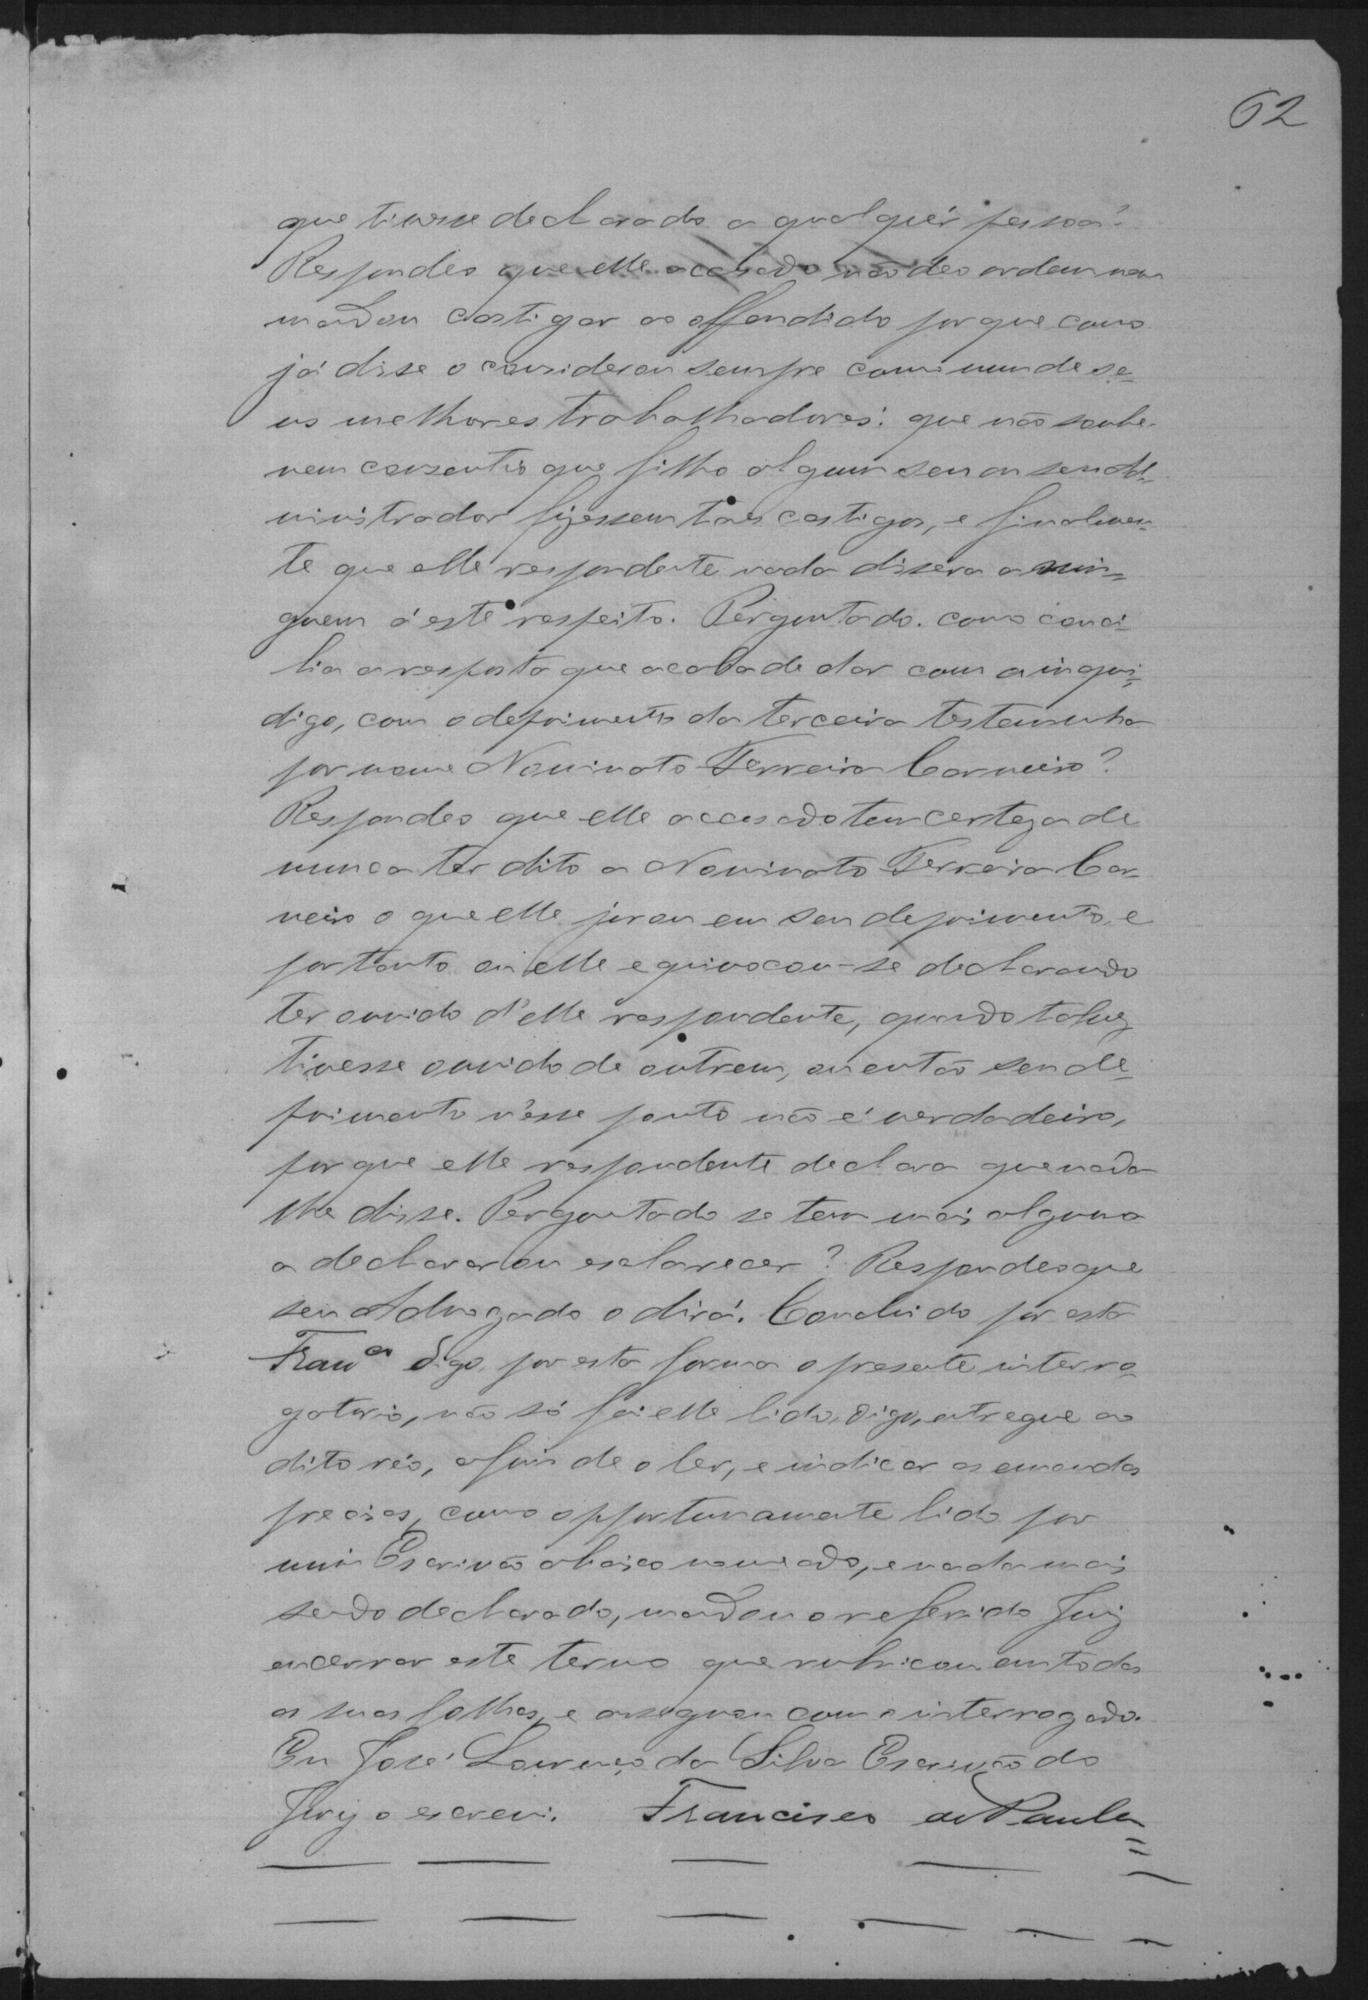 62
que tivesse declarado a qualquér pessoa?
Respondeo que elle accusado não deo ordem nem
mandou castigar ao offendido porque como
já disse o considerou sempre como um de se=
us melhores trabalhadores: que não soube
nem consentio que filho algum seu ou seu Ad=
ministrador fizessem taes castigos, e finalmen=
te que elle respondente nada dissera a nin=
guem á este respeito. Perguntado como conci=
lia a resposta que acaba de dar com a inqui=
digo, com o depoimento da terceira testemunha
por nome Nominato Ferreira Carneiro?
Respondeo que elle accusado tem certeza de
nunca ter dito a Nominato Ferreira Car=
neiro o que elle jurou em seu depoimento, e
portanto ou elle equivocou-se declarando
ter ouvido d'elle respondente, quando talvez
tivesse ouvido de outrem, ou então seu de=
poimento n'esse ponto não é verdadeiro,
porque elle respondente declara que nada
lhe disse. Perguntado se tem mais alguma
a declarar ou esclarecer? Respondeo que
seu Advogado o dirá. Concluido por esta
Franca digo, por esta forma o presente interro=
gatorio, não só foi elle lido, digo, entregue ao
dito réo, afim de o ler, e indicar as emendas
precisas, como opportunamente lido por
mim Escrivão abaixo nomeado, e nada mais
sendo declarado, mandou o referido Juiz
encerrar este termo que rubricou em todas
as suas folhas, e assignou com o interrogado.
Eu José Lourenço da Silva Escrivão do
Jury o escrevi. Francisco de Paula